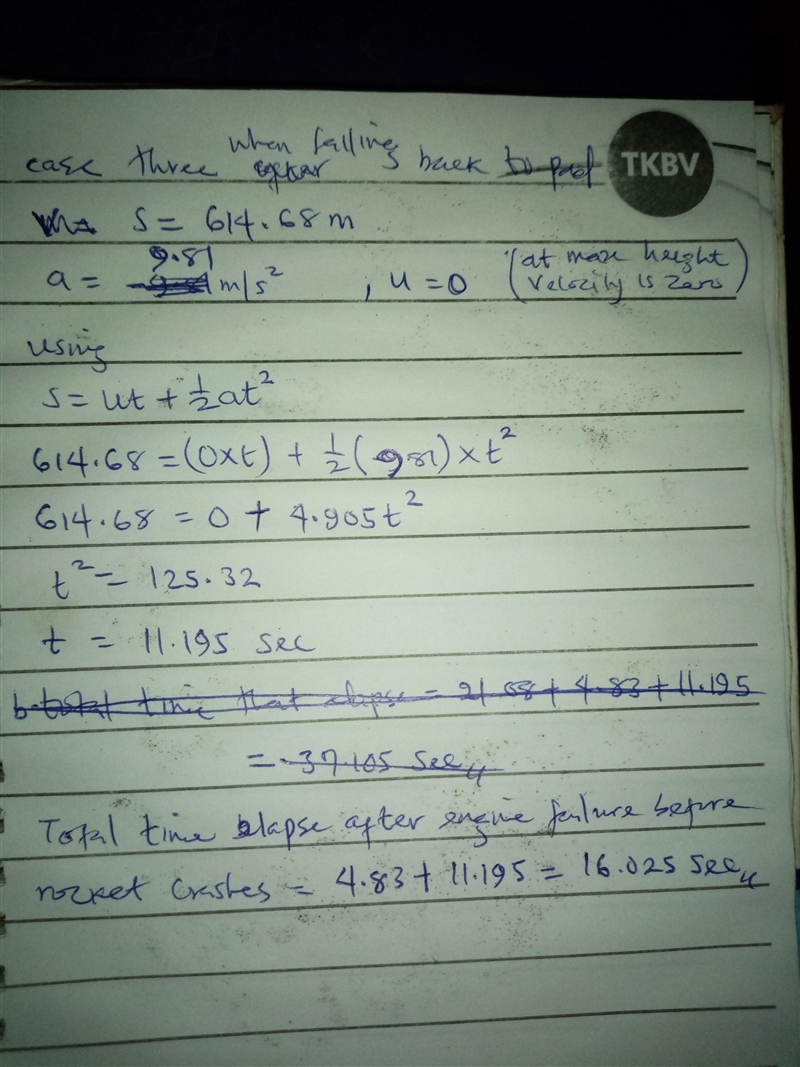 case three when falling back to pad
TKBV
S = 614.68 m
a = 9.81 m/s², u = 0 (at max height velocity is zero)
using
S = ut + ½at²
614.68 = (0xt) + ½(981) × t²
614.68 = 0 + 4.905t²
t² = 125.32
t = 11.195 sec
b. total time that elapse = 21.08 + 4.83 + 11.195
= 37.105 sec
Total time elapse after engine failure before
rocket crashes = 4.83 + 11.195 = 16.025 sec